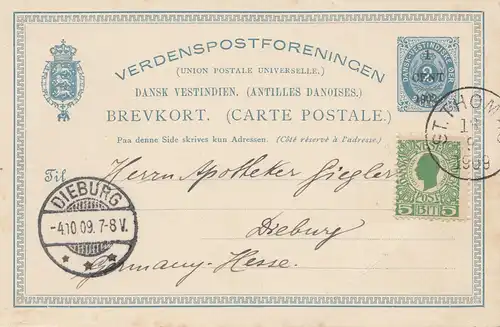 VERDENSPOSTFORENINGEN
(UNION POSTALE UNIVERSELLE.)
DANSK VESTINDIEN. (ANTILLES DANOISES.)
BREVKORT. (CARTE POSTALE.)
Paa denne Side skrives kun Adressen. (Côté réservé à l'adresse.)
1
CENT
1902
ST. THOM
1909
Til
Herrn Apotheker Siegler
DIEBURG
-4.10.09. 7-8V.
5 BIT 5
Dieburg
Germany. Hesse.